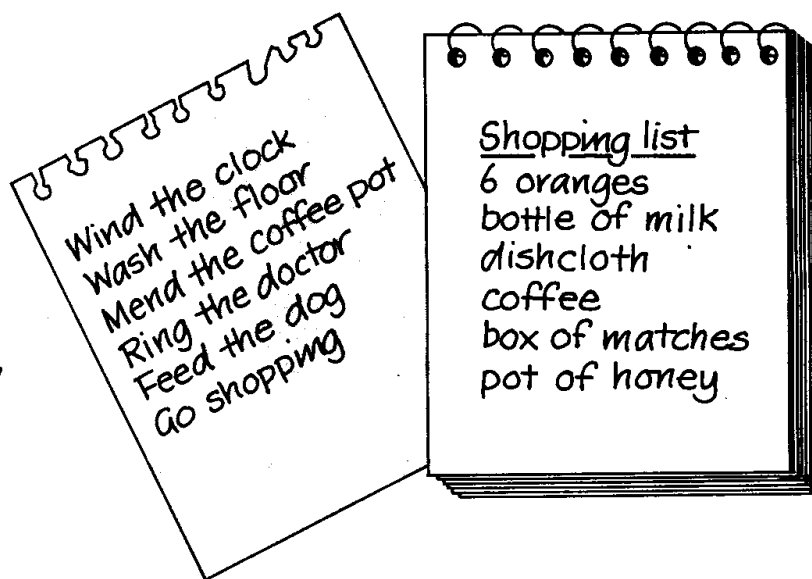 Wind the clock
Wash the floor
Mend the coffee pot
Ring the doctor
Feed the dog
Go shopping
Shopping list
6 oranges
bottle of milk
dishcloth
coffee
box of matches
pot of honey